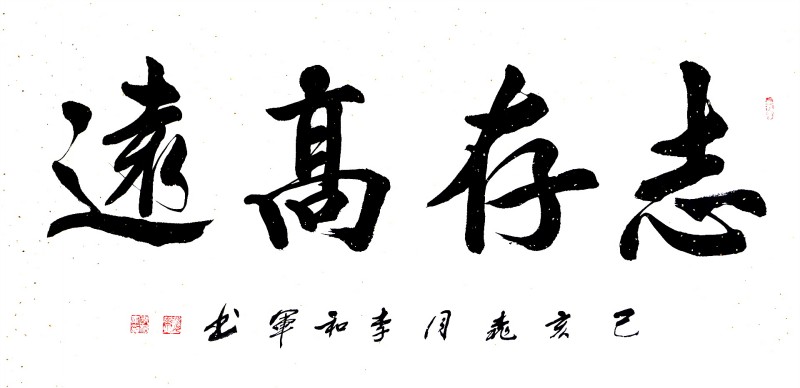 志存高遠
己亥桃月李和軍书